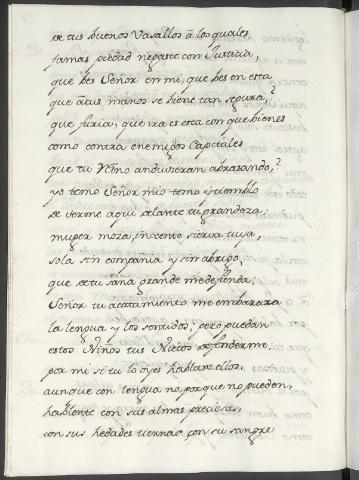 de tus buenos Vasallos â los quales,
jamas piedad negaste con Justicia,
que bes Señor en mi, que bes en esta
que atus manos se biene tan segura,?
que furia, que ira es esta con que bienes
como contra enemigos Capitales
que tu Reino andubieran abrasando,?
yo temo Señor mio temo y tiemblo
de verme aqui delante tu grandeza,
muger moza, inocente sierva tuya,
sola sin compania y sin abrigo,
que de tu saña grande me defienda;
Señor tu acatamiento me embaraza
la lengua y los sentidos; pero puedan
estos Niños tus Nietos defenderme,
por mi si tu lo oyes hablaran ellos,
aunque con lengua no, porque no pueden,
hablente con sus almas preciosas,
con sus hedades tiernas con su sangre